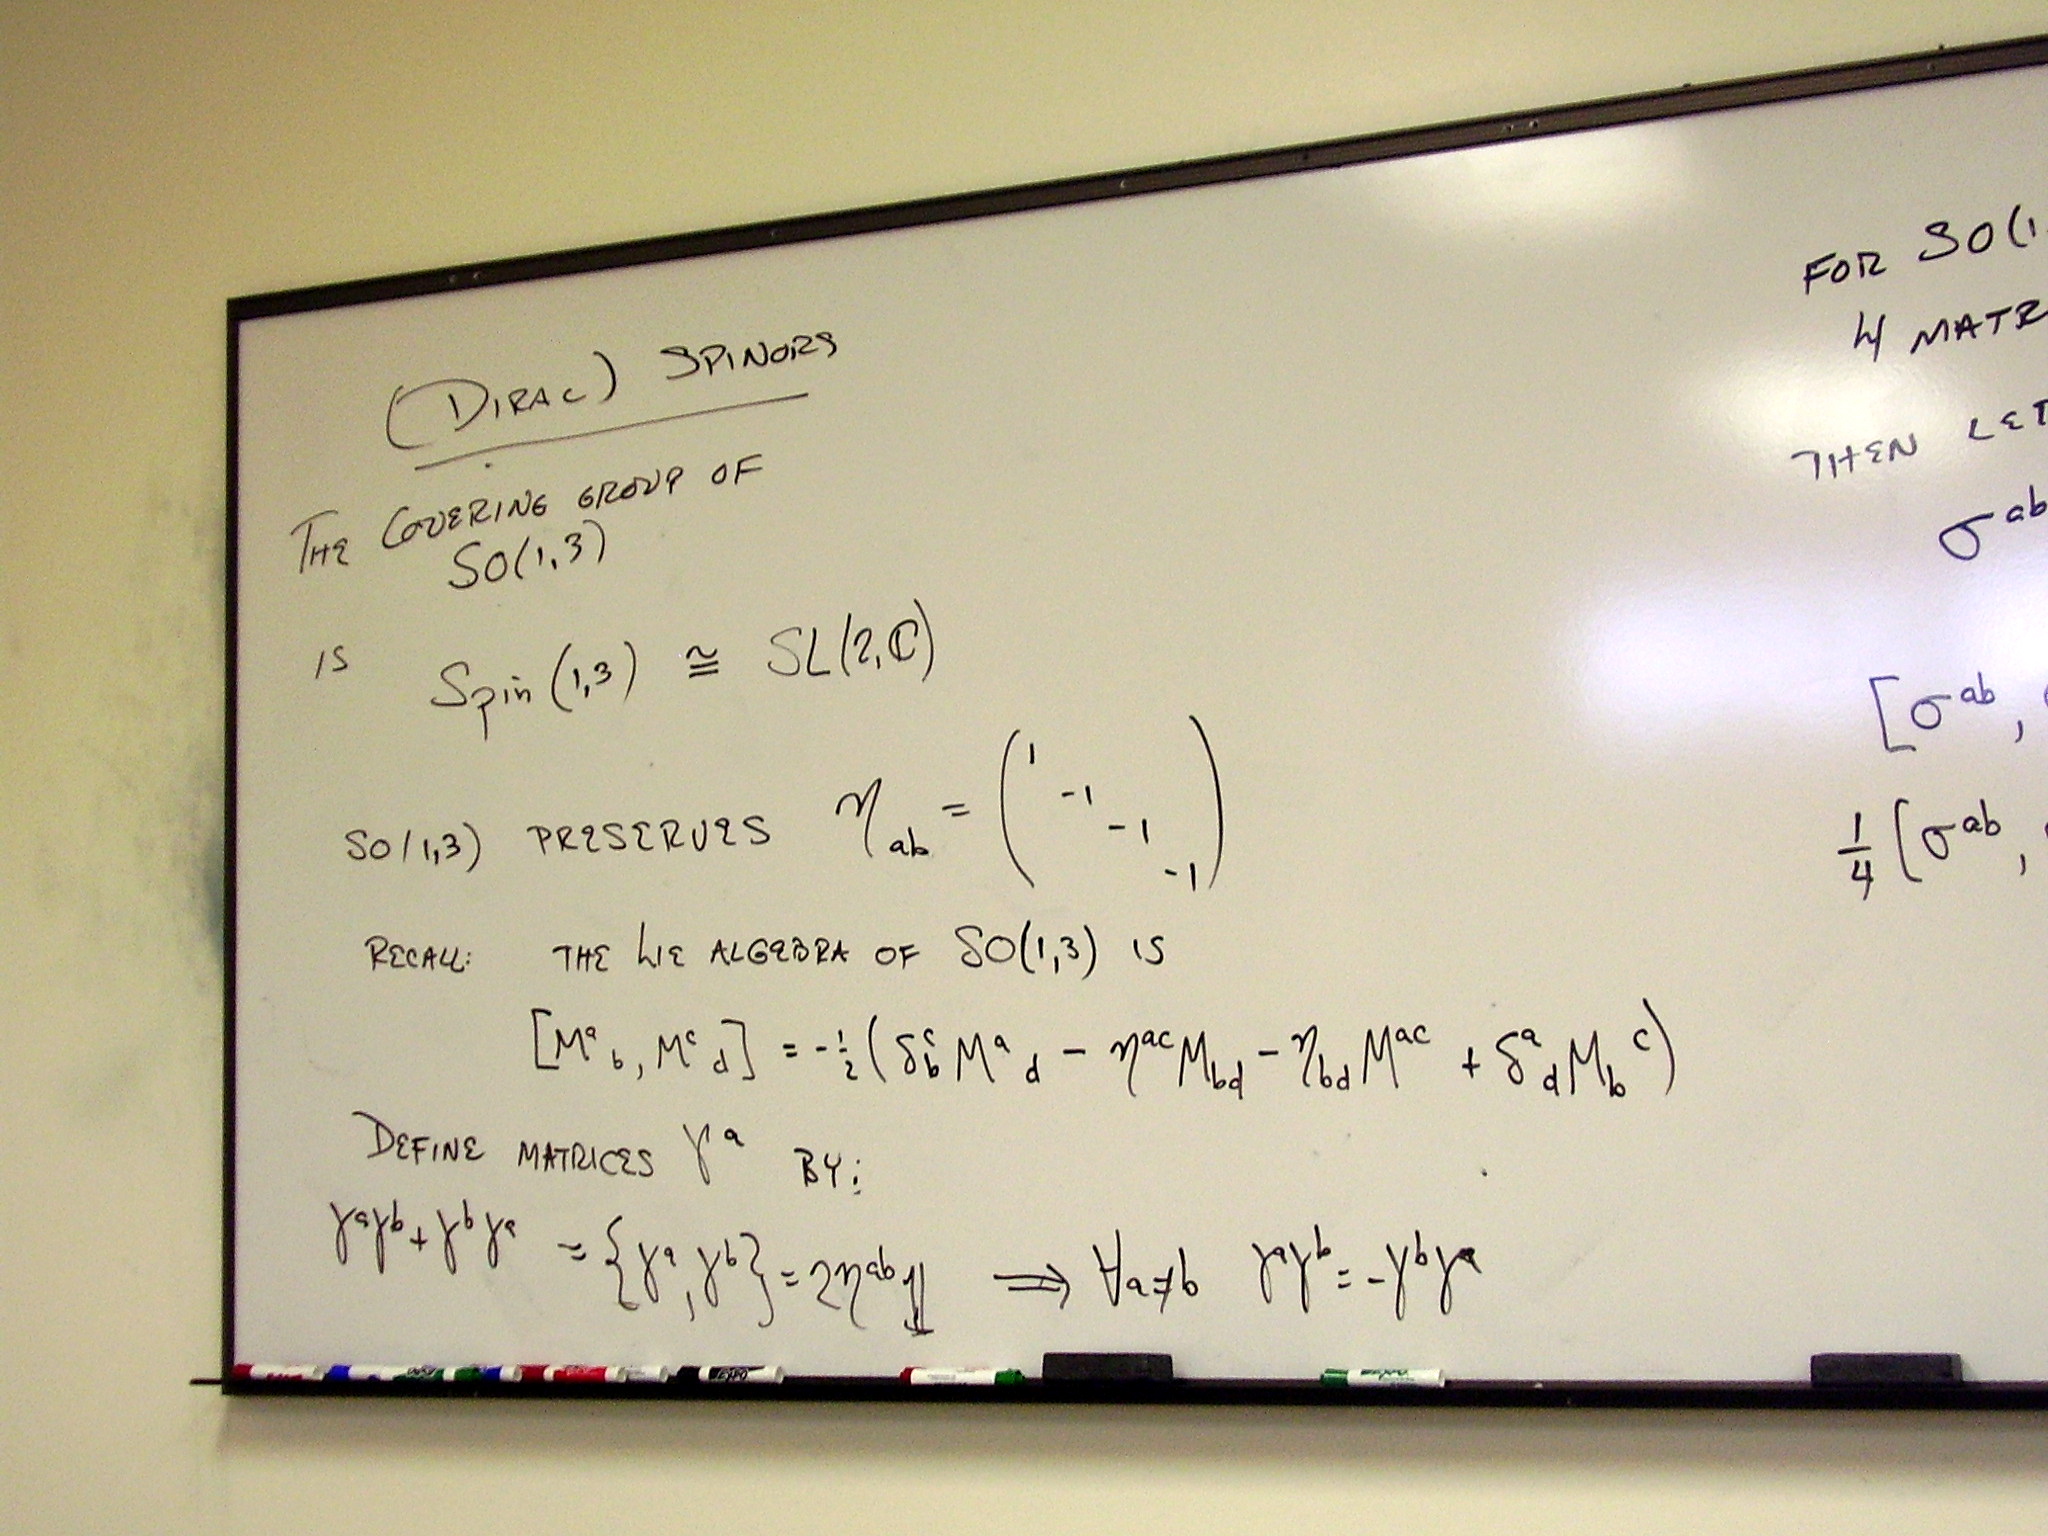 (DIRAC) SPINORS
THE COVERING GROUP OF
SO(1,3)
IS Spin(1,3) ≅ SL(2,ℂ)
SO(1,3) PRESERVES η_ab = ( 1 -1 -1 -1 )
RECALL: THE LIE ALGEBRA OF SO(1,3) IS
[M^a_b, M^c_d] = -1/2 (δ^c_b M^a_d - η^ac M_bd - η_bd M^ac + δ^a_d M_b^c)
DEFINE MATRICES γ^a BY:
γ^a γ^b + γ^b γ^a = {γ^a, γ^b} = 2η^ab 𝟙 ⟹ ∀ a≠b γ^a γ^b = -γ^b γ^a
FOR SO(1,
4 MATR
THEN LET
σ^ab
[σ^ab,
1/4 [σ^ab,
EXPO